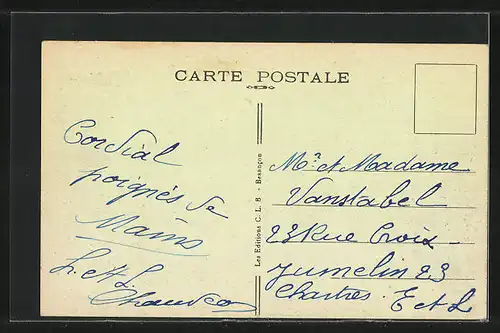 CARTE POSTALE
Cordial
poignés de
Mains
L. et L.
Les Editions C. L. B - Besançon
Mr et Madame
Vanstabel
23 Rue Croix
Jumelin 23
Chartres. E et L